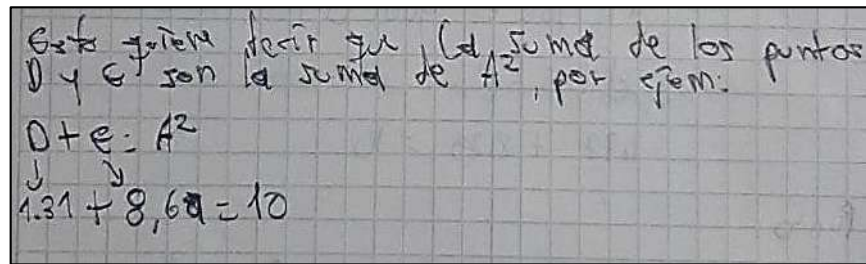 Esto quiere decir que la suma de los puntos
D y E son la suma de A², por ejem:
D + e = A²
1.31 + 8,69 = 10